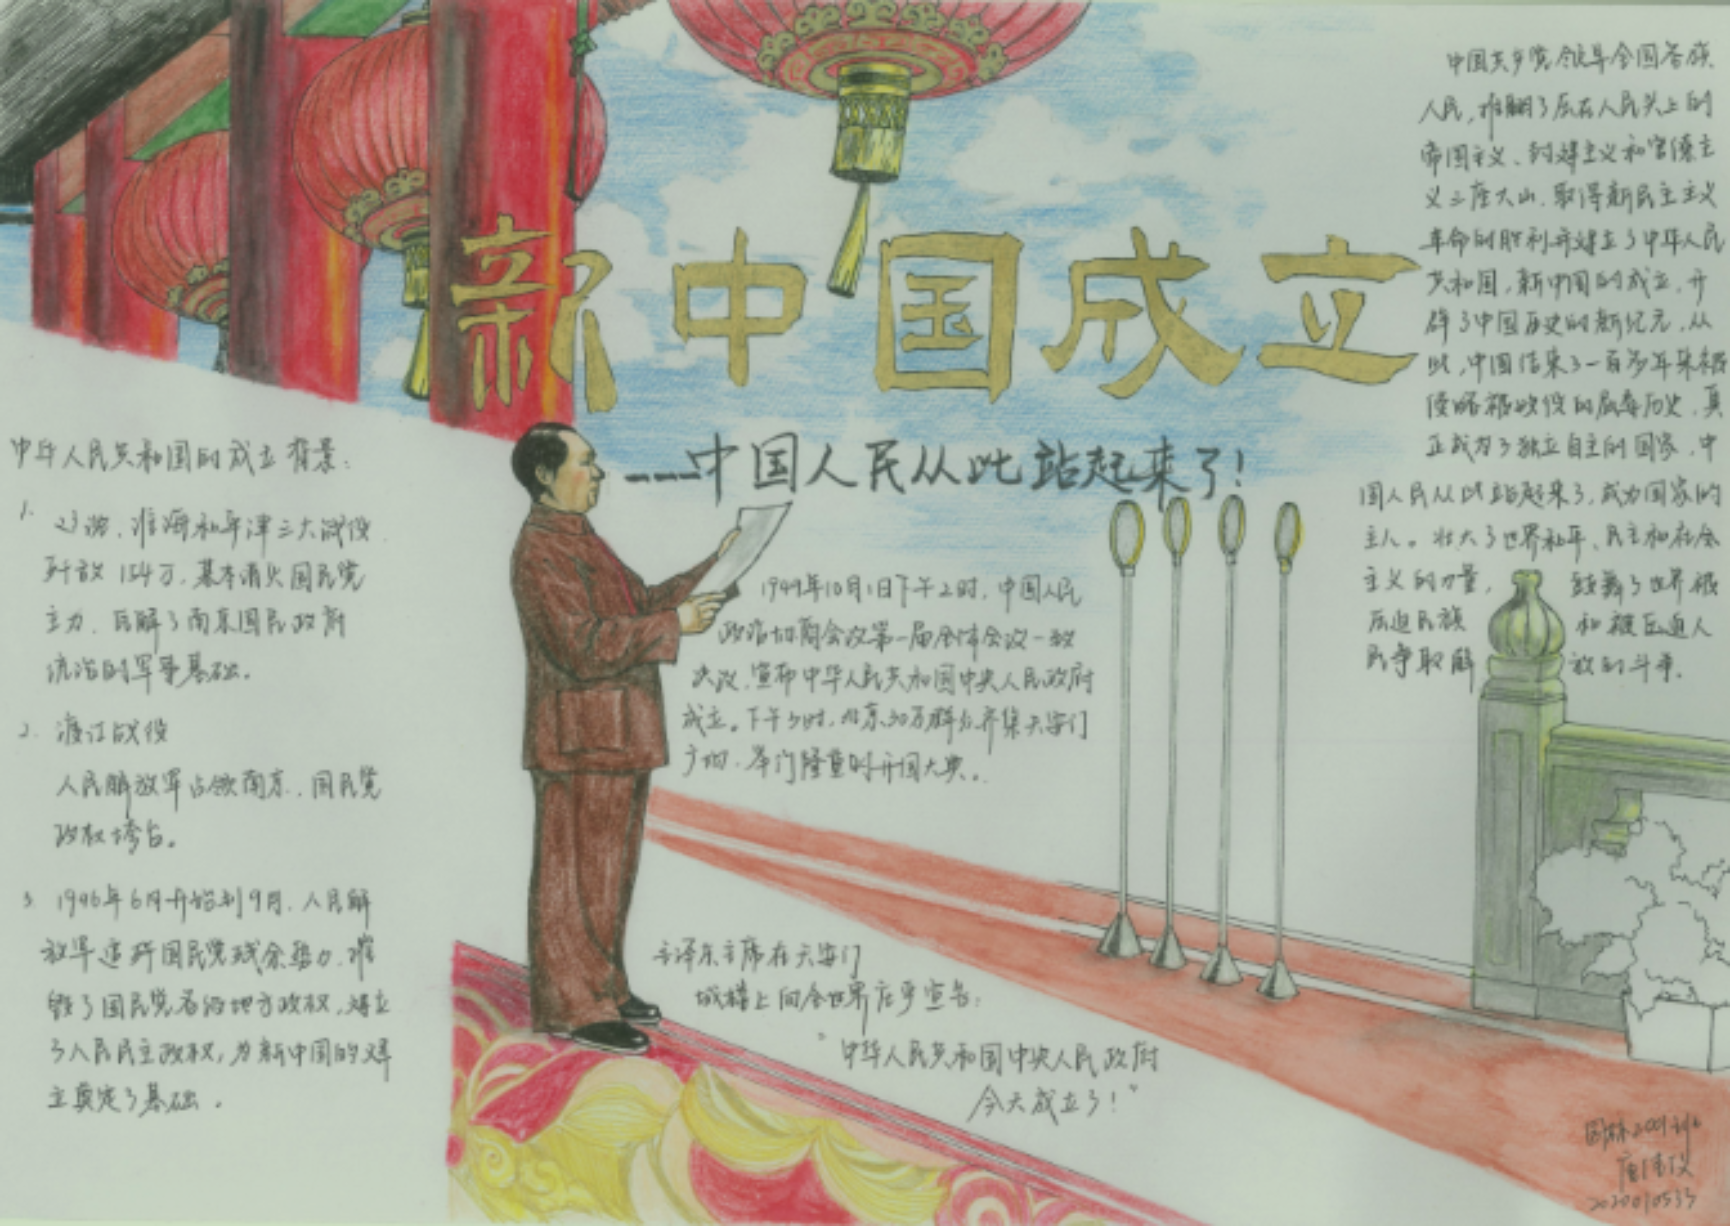 新中国成立
---中国人民从此站起来了!
中华人民共和国的成立背景:
1. 辽沈、淮海和平津三大战役
歼敌154万,基本消灭国民党
主力,瓦解了南京国民政府
统治的军事基础。
2. 渡江战役
人民解放军占领南京,国民党
政权垮台。
3. 1946年6月开始到9月,人民解
放军追歼国民党残余势力,摧
毁了国民党各级地方政权,建立
了人民民主政权,为新中国的建
立奠定了基础。
1949年10月1日下午2时,中国人民
政治协商会议第一届全体会议一致
决议,宣布中华人民共和国中央人民政府
成立。下午3时,北京30万群众齐集天安门
广场,举行隆重的开国大典。
毛泽东主席在天安门
城楼上向全世界庄严宣告:
“中华人民共和国中央人民政府
今天成立了!”
中国共产党领导全国各族
人民,推翻了压在人民头上的
帝国主义、封建主义和官僚主
义三座大山,取得新民主主义
革命的胜利并建立了中华人民
共和国,新中国的成立,开
辟了中国历史的新纪元,从
此,中国结束了一百多年来被
侵略被奴役的屈辱历史,真
正成为了独立自主的国家,中
国人民从此站起来了,成为国家的
主人。壮大了世界和平、民主和社会
主义的力量,鼓舞了世界被
压迫民族和被压迫人
民争取解放的斗争。
园林2001
2020010533